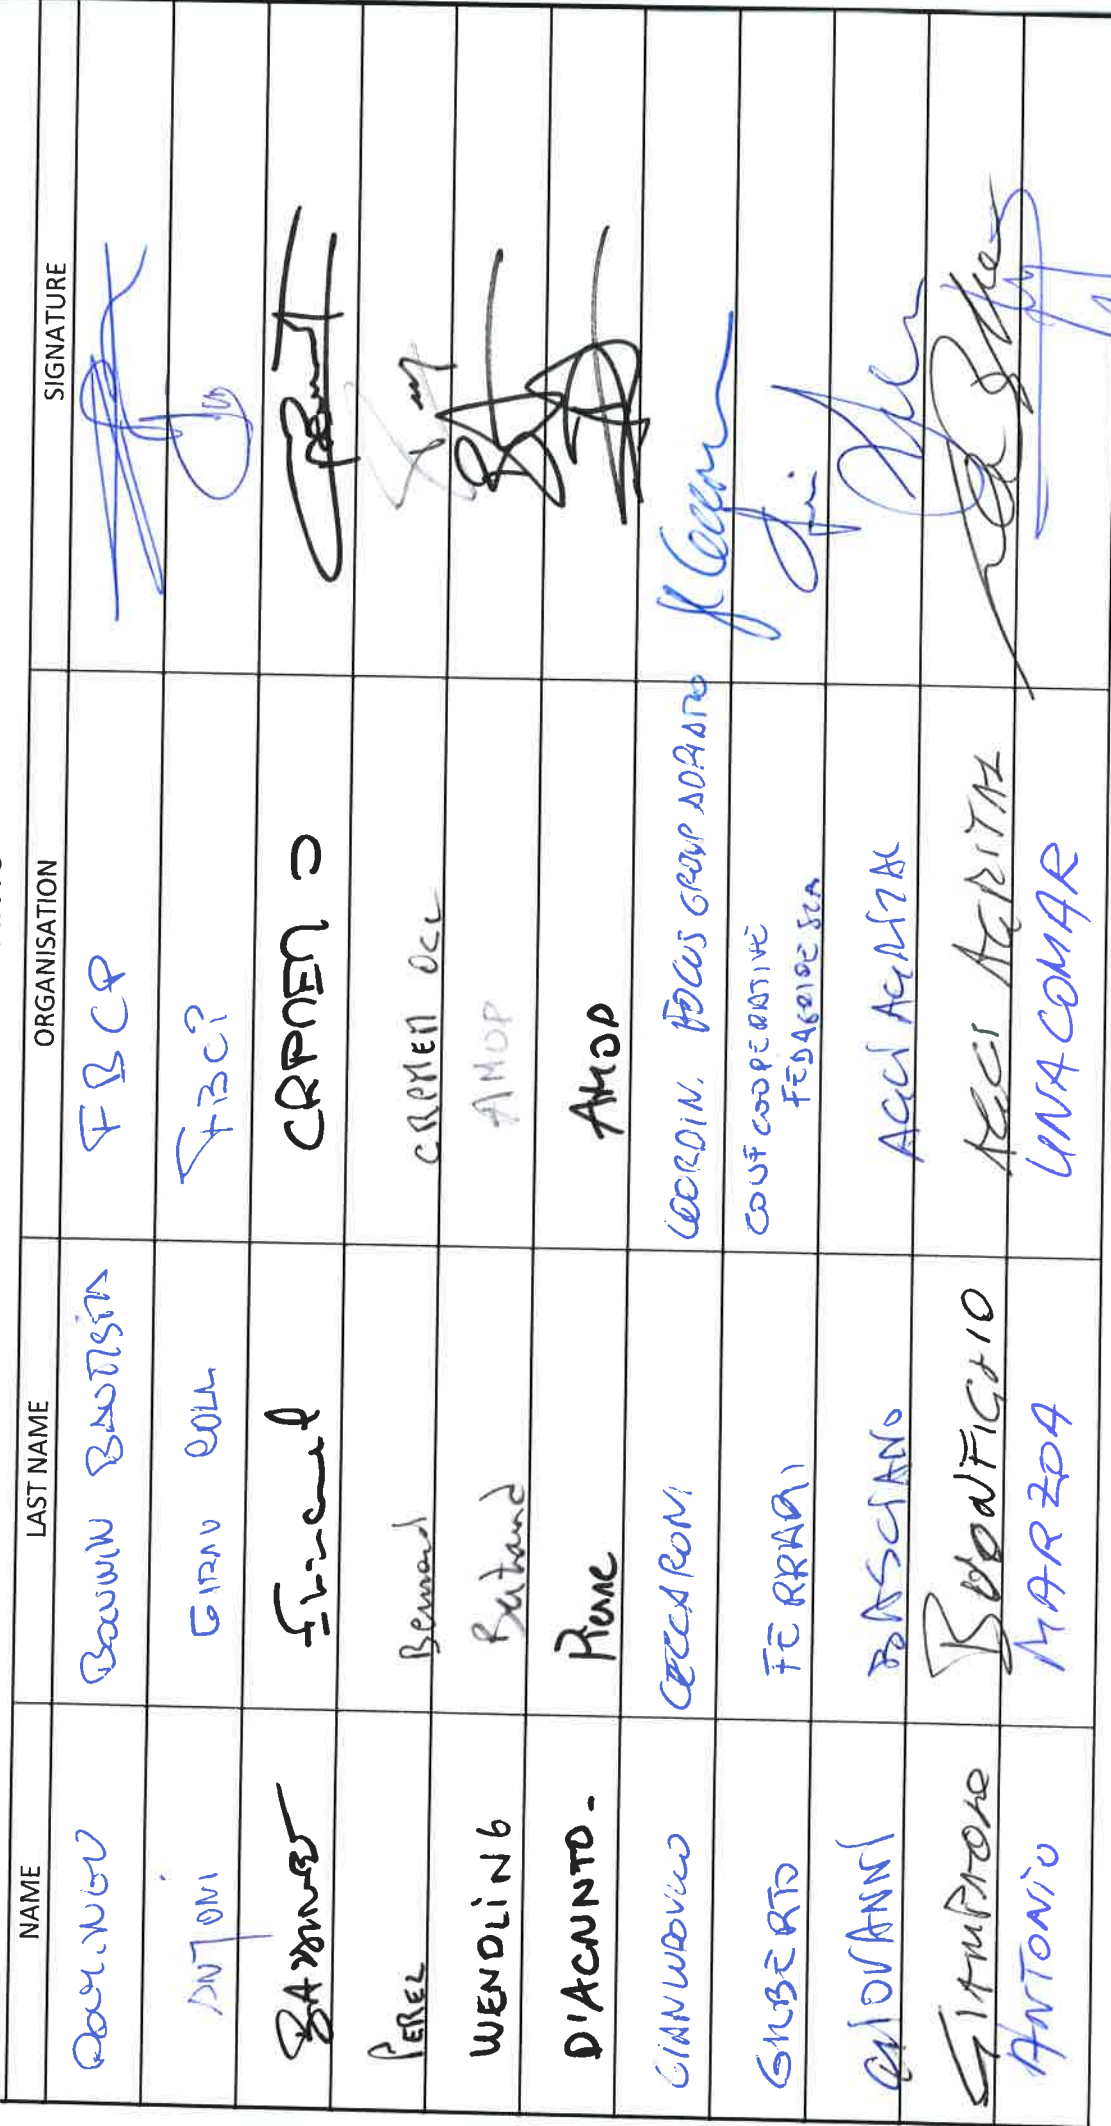 NAME LAST NAME ORGANISATION SIGNATURE
DOMINGO BONNIN BAUTISTA FBCP
ANTONI GIRAU COLL FBCP
CRPMEM
PEREZ Bernard CRPMEM OCC
WENDLiNG Bertrand AMOP
D'ACUNTO. Pierre AMOP
GIANLUDOVICO CECCARONI COORDIN. FOCUS GROUP ADRIATICO
GILBERTO FERRARI CONFCOOPERATIVE
FEDAGRIPESCA
GIOVANNI BASCIANO AGCI AGRITAL
GIAMPAOLO BUONFIGLIO AGCI AGRITAL
ANTONIO MARZOA UNACOMAR